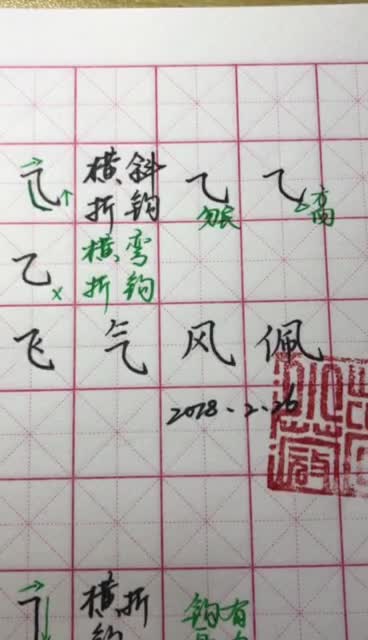 横斜
折钩
勿长
高
乙 × 横弯
折钩
飞气风佩
2018.2.26
横折
钩
钩有